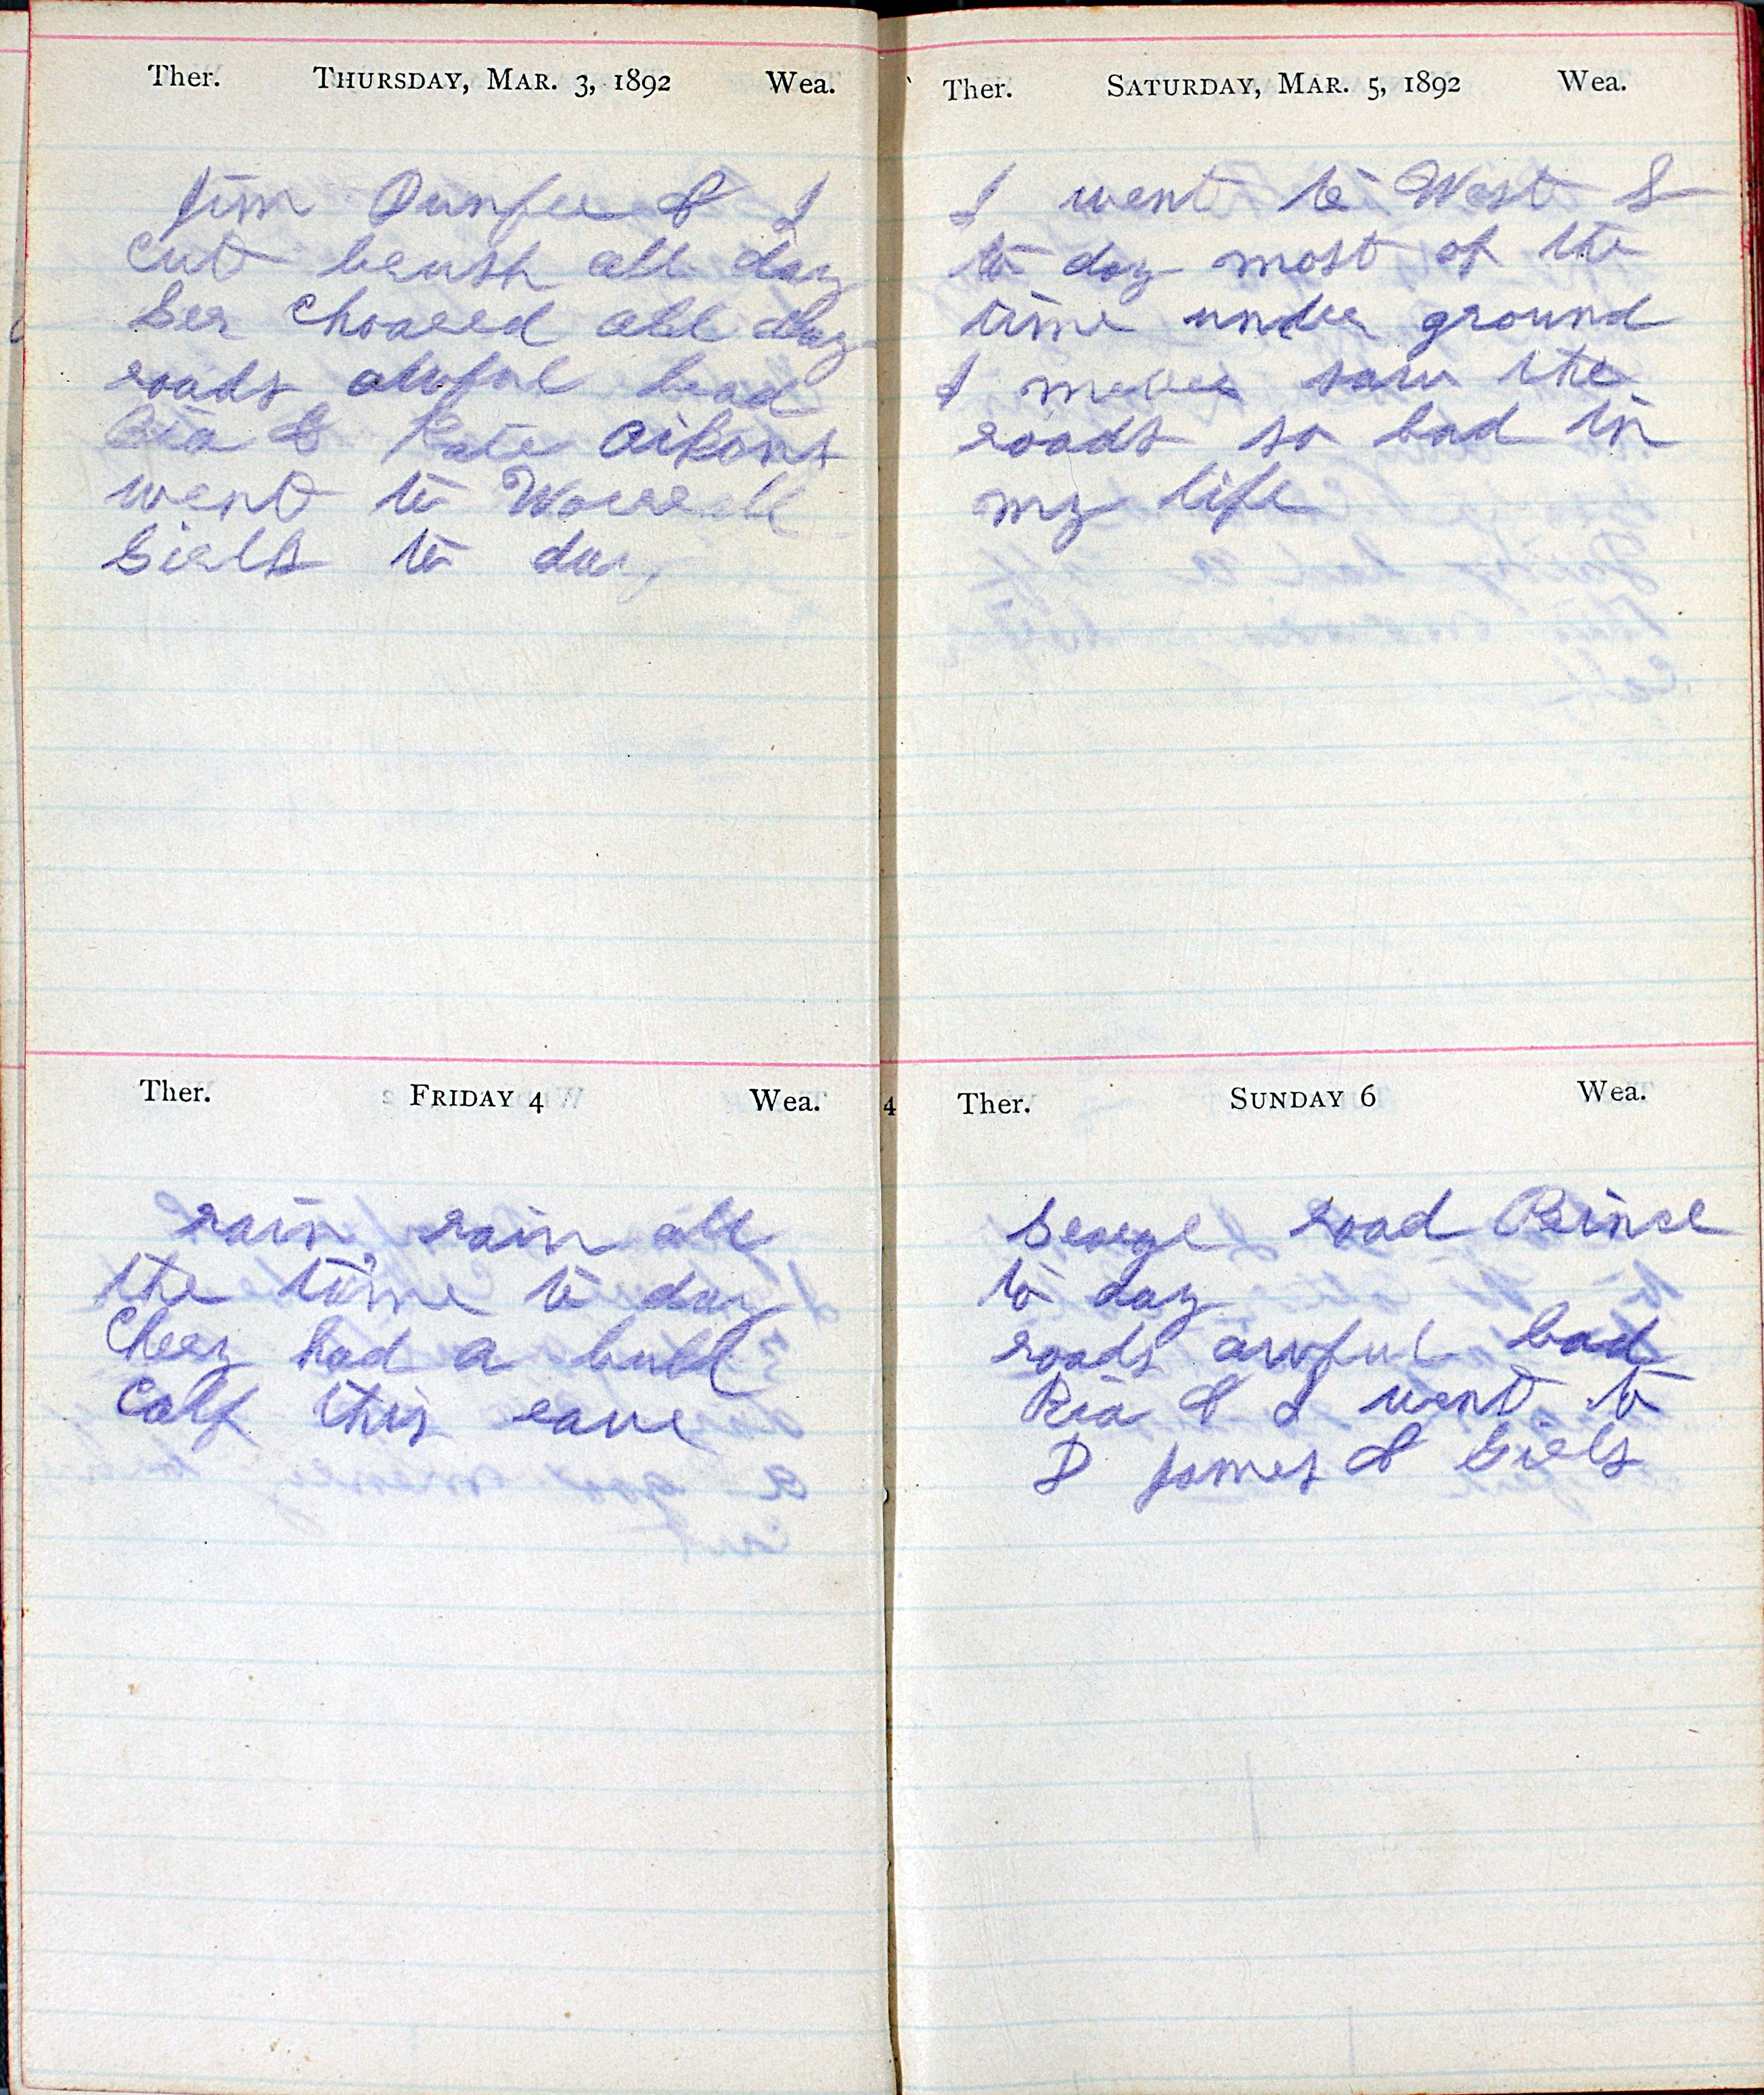 Ther. THURSDAY, MAR. 3, 1892 Wea.
Jim Dunfee & I
Cut brush all day
Ger Choared all day
roads awful bad
Ria & Kate Aikens
went to Worrall
Girls to day
Ther. FRIDAY 4 Wea.
rain rain all
the time to day
Cherry had a bull
Calf this eave
Ther. SATURDAY, MAR. 5, 1892 Wea.
I went to West G
to day most of the
time under ground
I never saw the
roads so bad in
my life
4 Ther. SUNDAY 6 Wea.
George road Prince
to day
roads awful bad
Ria & I went to
D James & Girls